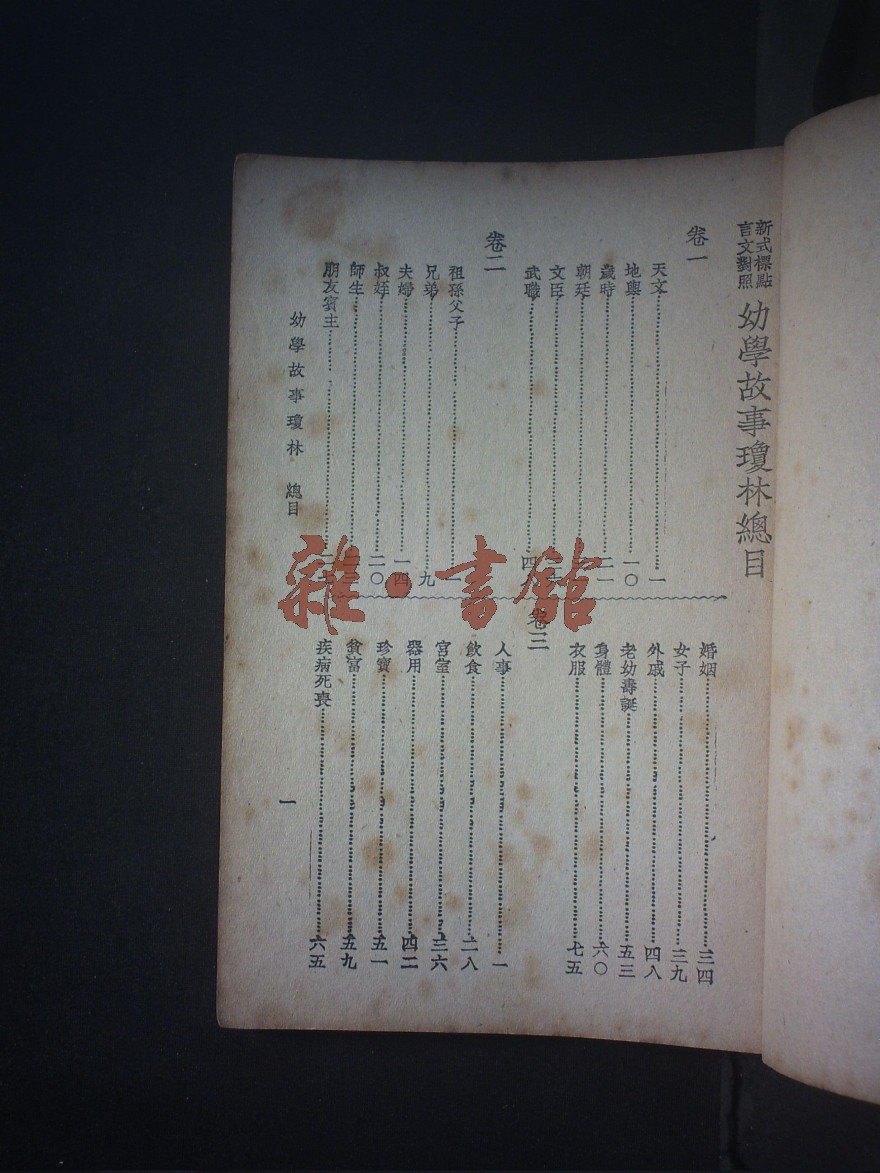 新式標點
言文對照
幼學故事瓊林總目
卷一
天文…一
地輿…一〇
歲時…二一
朝廷…
文臣…
武職…四
卷二
祖孫父子…一
兄弟…九
夫婦…一四
叔姪…二〇
師生…二三
朋友賓主…二
婚姻…三四
女子…三九
外戚…四八
老幼壽誕…五三
身體…六〇
衣服…七五
卷三
人事…一
飲食…二八
宮室…三六
器用…四二
珍寶…五一
貧富…五九
疾病死喪…六五
幼學故事瓊林 總目
一
雜·書館